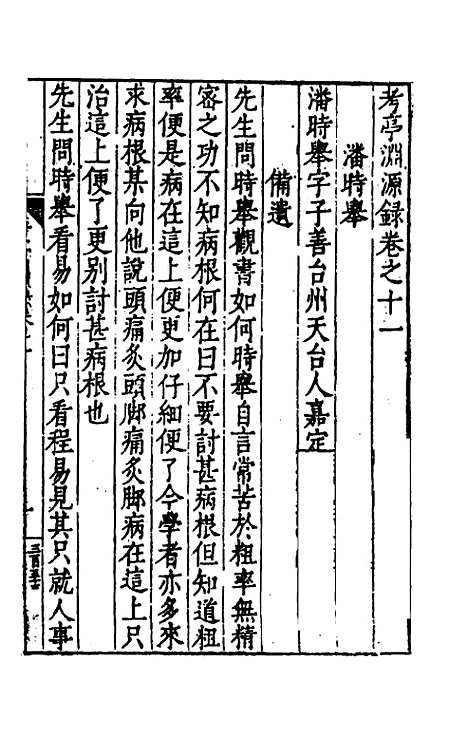 考亭淵源録卷之十一
潘時舉
潘時舉字子善台州天台人嘉定
備遺
先生問時舉觀書如何時舉自言常苦於粗率無精
宻之功不知病根何在曰不要討甚病根但知道粗
率便是病在這上便更加仔細便了今學者亦多來
求病根某向他說頭痛灸頭脚痛灸脚病在這上只
治這上便了更别討甚病根也
先生問時舉看易如何曰只看程易見其只就人事